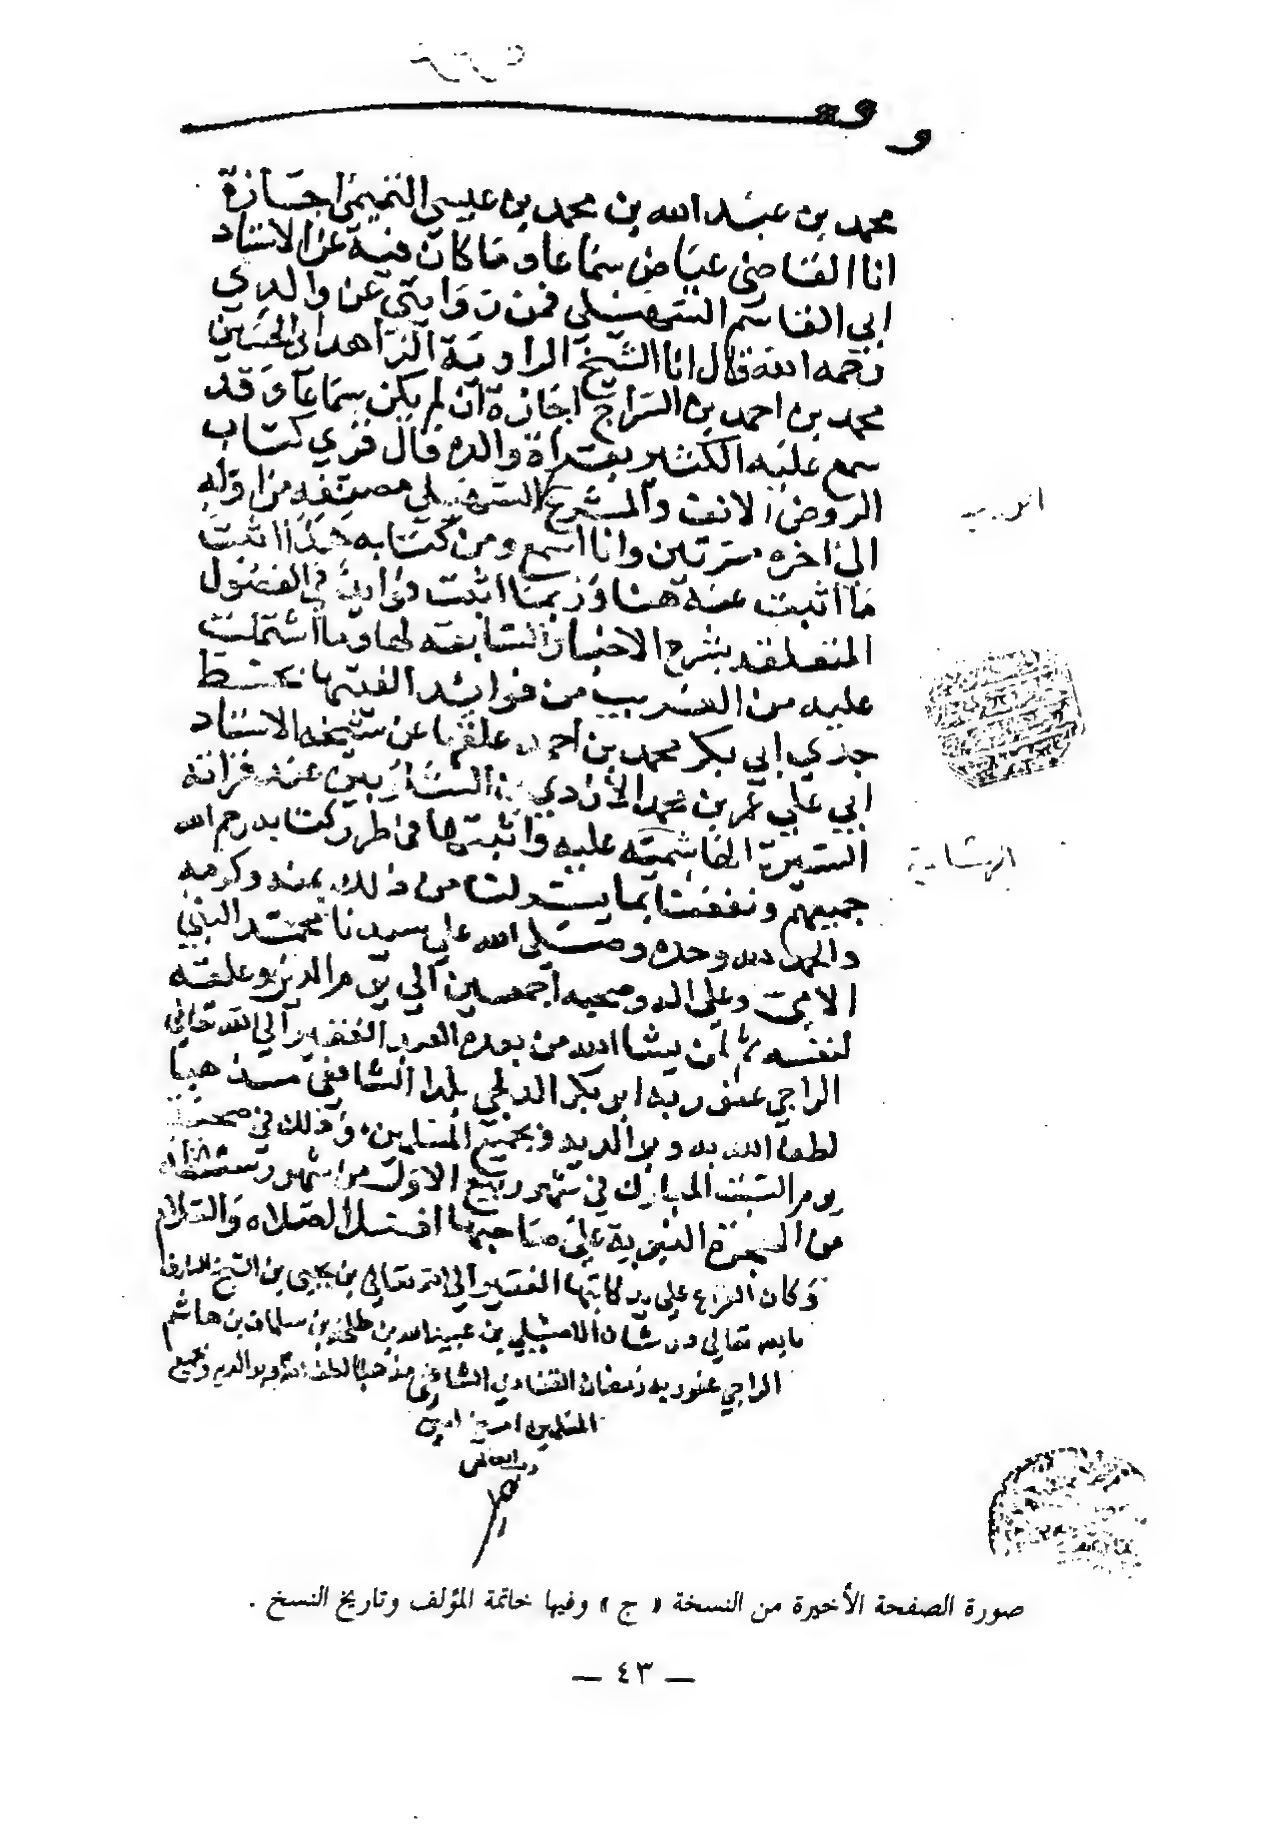 محمد بن عبد الله بن محمد بن عيسى التميمي اجازة
انا القاضي عياض سماعا وما كان فيه عن الاستاد
ابي القاسم السهيلي فمن روايتي عن والدي
رحمه الله قال انا الشيخ الراوية الزاهد ابو الحسين
محمد بن احمد بن السراج اجازة ان لم يكن سماعا وقد
سمع عليه الكثير بقراة والده قال قري كتاب
الروض الانف والمشرع السهيلي مصنفه من اوله
الى اخره مرتين وانا اسمع ومن كتابه هذا اثبت
ما اثبت عنه هنا وربما اثبت فوايد في الفصول
المتعلقه بشرح الاخبار السابقه لها وما اشتملت
عليه من الغريب من فوايد الفيتها بخط
جدي ابي بكر محمد بن احمد علقها عن شيخه الاستاد
ابي علي عمر بن محمد الأزدي بن الشلوبين عند قراته
السيرة الهاشميه عليه واثبتها في طرر كتابه رحم الله
جميعهم ونفعنا بما يسره لنا من ذلك بمنه وكرمه
والحمد لله وحده وصلى الله على سيدنا محمد النبي
الامي وعلى اله وصحبه اجمعين الى يوم الدين وعلقه
لنفسه ثم لمن يشا الله من بعده العبد الفقير الى الله تعالى
الراجي عفو ربه ابو بكر الدلجي بلدا الشافعي مذهبا
لطف الله به وبوالديه وبجميع المسلمين وذلك في
يوم السبت المبارك في شهر ربيع الاول من شهور سنة
من الهجرة النبوية على صاحبها افضل الصلاه والسلام
وكان الفراغ على يد كاتبها الفقير الى الله تعالى بن يحيى بن الشيخ العارف
بالله تعالى بن عبد الله بن طلحة بن سلمان بن هاشم
الراجي عفو ربه رمضان الشافعي مذهبا لطف الله به وبوالديه وبجميع
المسلمين امين امين
رب العالمين
صورة الصفحة الأخيرة من النسخة « ج » وفيها خاتمة المؤلف وتاريخ النسخ .
— ٤٣ —